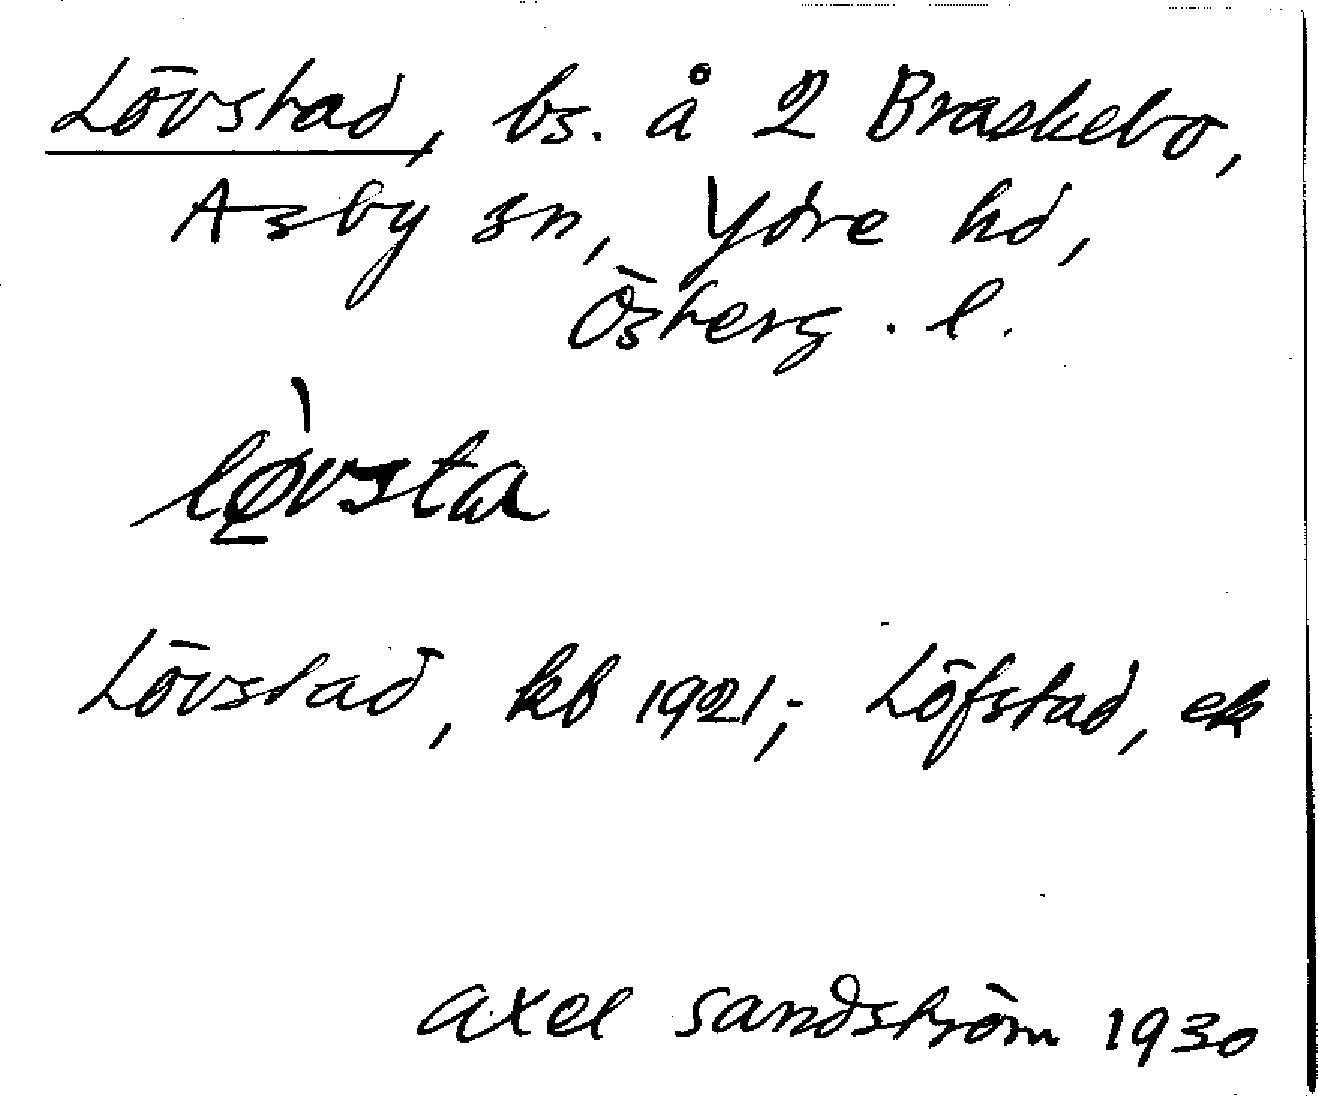 Lövstad, bs. å 2 Braskebo,
Asby sn, Ydre hd,
Östergl.
lø̀vsta
Lövstad, kb 1921; Löfstad, ek
Axel Sandström 1930